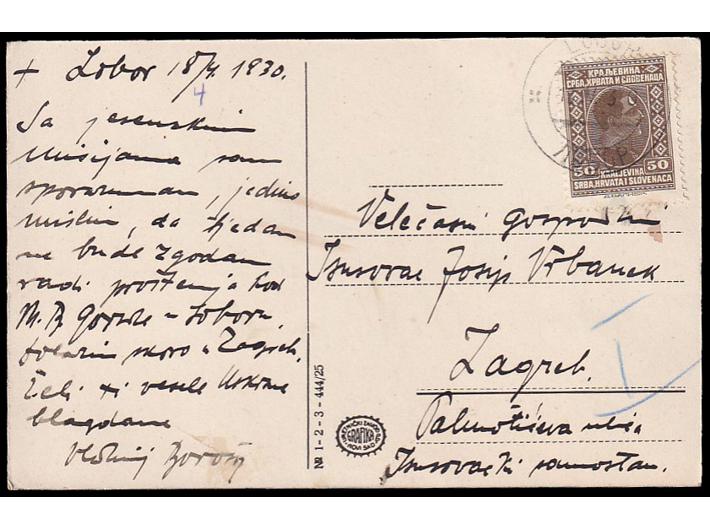 + Lobor 18/4. 1930.
4
Sa jesenskim
misijama sam
sporazuman, jedino
mislim, da tjedan
ne bude zgodan
radi proštenja kod
M. B. Gorske u Loboru
dolazim skoro u Zagreb.
Želi ti vesele Uskrsne
blagdane
LOBOR
КРАЉЕВИНА
СРБА, ХРВАТА И СЛОВЕНАЦА
50 50
KRALJEVINA
SRBA, HRVATA I SLOVENACA
Velečasni gospodin
Isusovac Josip Vrbanek
Zagreb.
Palmotićeva ulica
Isusovački samostan.
I
№ 1-2-3-444/25
UMJETNIČKI ZAVOD
GRAFIKA
NOVI SAD